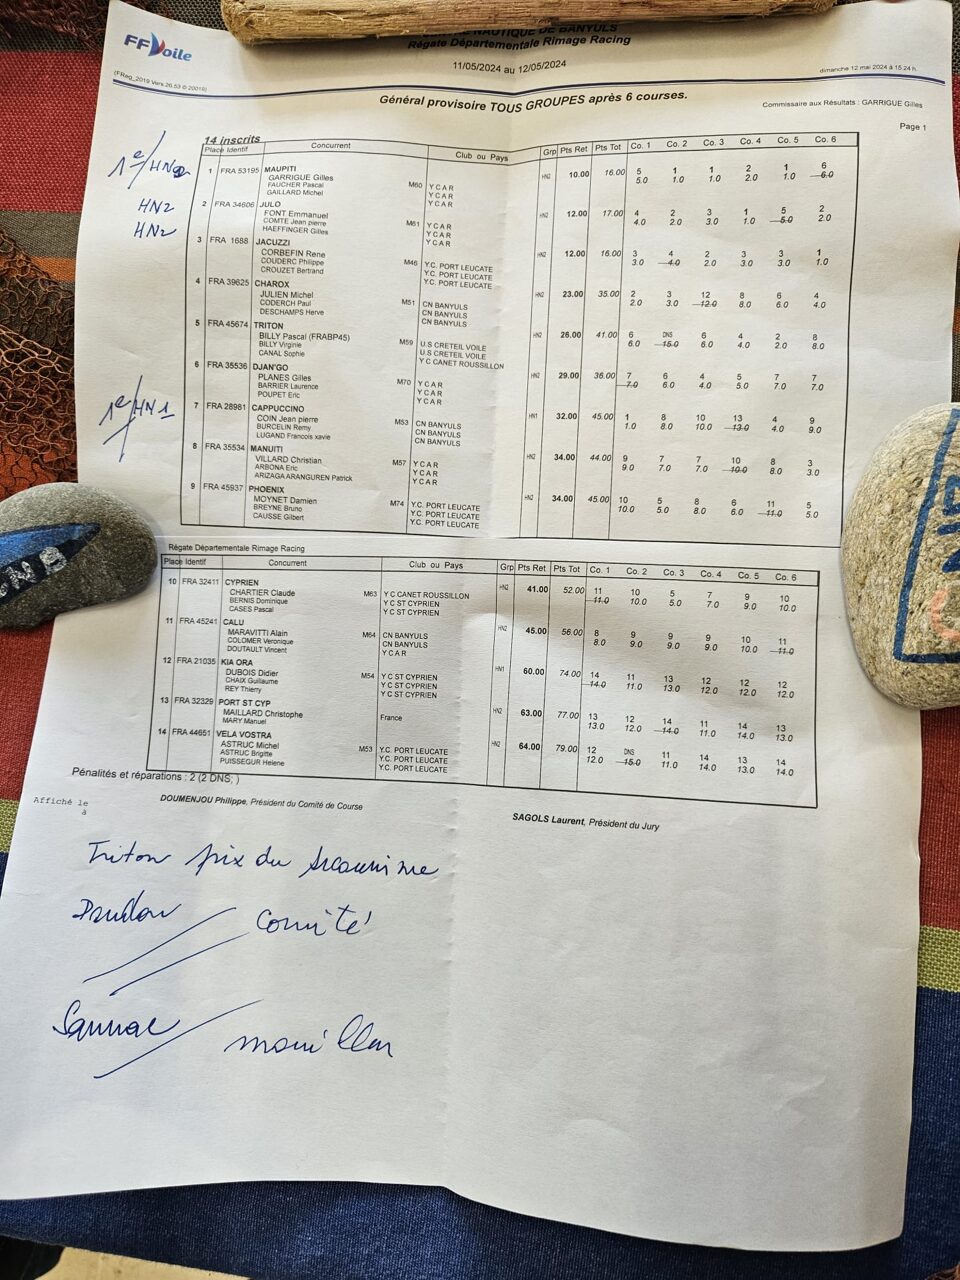 NAUTIQUE DE BANYULS
FFVoile
Régate Départementale Rimage Racing
11/05/2024 au 12/05/2024
(FReg_2019 Vers 20.53 © 20019)
dimanche 12 mai 2024 à 15:24 h.
Général provisoire TOUS GROUPES après 6 courses.
Commissaire aux Résultats : GARRIGUE Gilles
Page 1
14 inscrits
Place Identif Concurrent Club ou Pays Grp Pts Ret Pts Tot Co. 1 Co. 2 Co. 3 Co. 4 Co. 5 Co. 6
1e/HN2
1 FRA 53195 MAUPITI HN2 10.00 16.00 5 1 1 2 1 6
GARRIGUE Gilles M60 Y C A R 5.0 1.0 1.0 2.0 1.0 6.0
FAUCHER Pascal Y C A R
GAILLARD Michel Y C A R
HN2
2 FRA 34606 JULO HN2 12.00 17.00 4 2 3 1 5 2
FONT Emmanuel M61 Y C A R 4.0 2.0 3.0 1.0 5.0 2.0
COMTE Jean pierre Y C A R
HAEFFINGER Gilles Y C A R
HN2
3 FRA 1688 JACUZZI HN2 12.00 16.00 3 4 2 3 3 1
CORBEFIN Rene M46 Y.C. PORT LEUCATE 3.0 4.0 2.0 3.0 3.0 1.0
COUDERC Philippe Y.C. PORT LEUCATE
CROUZET Bertrand Y.C. PORT LEUCATE
4 FRA 39625 CHAROX HN2 23.00 35.00 2 3 12 8 6 4
JULIEN Michel M51 CN BANYULS 2.0 3.0 12.0 8.0 6.0 4.0
CODERCH Paul CN BANYULS
DESCHAMPS Herve CN BANYULS
5 FRA 45674 TRITON HN2 26.00 41.00 6 DNS 6 4 2 8
BILLY Pascal (FRABP45) M59 U.S CRETEIL VOILE 6.0 15.0 6.0 4.0 2.0 8.0
BILLY Virginie U.S CRETEIL VOILE
CANAL Sophie Y C CANET ROUSSILLON
6 FRA 35536 DJAN'GO HN2 29.00 36.00 7 6 4 5 7 7
PLANES Gilles M70 Y C A R 7.0 6.0 4.0 5.0 7.0 7.0
BARRIER Laurence Y C A R
POUPET Eric Y C A R
1e/HN1
7 FRA 28981 CAPPUCCINO HN1 32.00 45.00 1 8 10 13 4 9
COIN Jean pierre M53 CN BANYULS 1.0 8.0 10.0 13.0 4.0 9.0
BURCELIN Remy CN BANYULS
LUGAND Francois xavie CN BANYULS
8 FRA 35534 MANUITI HN2 34.00 44.00 9 7 7 10 8 3
VILLARD Christian M57 Y C A R 9.0 7.0 7.0 10.0 8.0 3.0
ARBONA Eric Y C A R
ARIZAGA ARANGUREN Patrick Y C A R
9 FRA 45937 PHOENIX HN2 34.00 45.00 10 5 8 6 11 5
MOYNET Damien M74 Y.C. PORT LEUCATE 10.0 5.0 8.0 6.0 11.0 5.0
BREYNE Bruno Y.C. PORT LEUCATE
CAUSSE Gilbert Y.C. PORT LEUCATE
Régate Départementale Rimage Racing
Place Identif Concurrent Club ou Pays Grp Pts Ret Pts Tot Co. 1 Co. 2 Co. 3 Co. 4 Co. 5 Co. 6
10 FRA 32411 CYPRIEN HN2 41.00 52.00 11 10 5 7 9 10
CHARTIER Claude M63 Y C CANET ROUSSILLON 11.0 10.0 5.0 7.0 9.0 10.0
BERNIS Dominique Y C ST CYPRIEN
CASES Pascal Y C ST CYPRIEN
11 FRA 45241 CALU HN2 45.00 56.00 8 9 9 9 10 11
MARAVITTI Alain M64 CN BANYULS 8.0 9.0 9.0 9.0 10.0 11.0
COLOMER Veronique CN BANYULS
DOUTAULT Vincent Y C A R
12 FRA 21035 KIA ORA HN1 60.00 74.00 14 11 13 12 12 12
DUBOIS Didier M54 Y C ST CYPRIEN 14.0 11.0 13.0 12.0 12.0 12.0
CHAIX Guillaume Y C ST CYPRIEN
REY Thierry Y C ST CYPRIEN
13 FRA 32329 PORT ST CYP HN2 63.00 77.00 13 12 14 11 14 13
MAILLARD Christophe France 13.0 12.0 14.0 11.0 14.0 13.0
MARY Manuel
14 FRA 44651 VELA VOSTRA HN2 64.00 79.00 12 DNS 11 14 13 14
ASTRUC Michel M53 Y.C. PORT LEUCATE 12.0 15.0 11.0 14.0 13.0 14.0
ASTRUC Brigitte Y.C. PORT LEUCATE
PUISSEGUR Helene Y.C. PORT LEUCATE
Pénalités et réparations : 2 (2 DNS; )
Affiché le
à
DOUMENJOU Philippe, Président du Comité de Course
SAGOLS Laurent, Président du Jury
Triton prix du
Comité
mouilleur